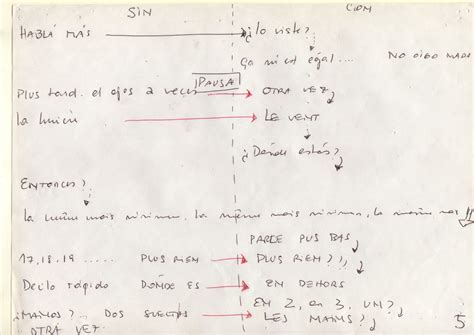 SIN COM
HABLÁ MÁS ¿lo viste?
Ça m'est égal.... NO OIGO NADA
PAUSA
Plus tard. el ojos a veces OTRA VEZ
la lumière LE VENT
¿Dónde estás?
ENTONCES?
la même mais minimum, la même mais minimum, la même mas
PARLE PLUS BAS,
17, 18, 19 ..... PLUS RIEN PLUS RIEN?
Decilo rápido DÓNDE ES EN DEHORS
EN 2, en 3, UM?
¿MAINS? .. DOS SUELTAS LES MAINS?
OTRA VEZ 5